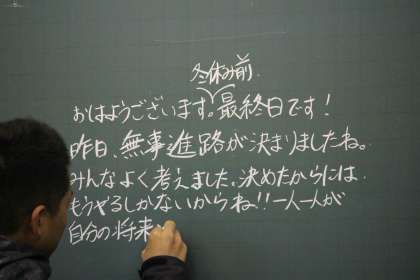 冬休み前
おはようございます。最終日です！
昨日、無事進路が決まりましたね。
みんなよく考えました。決めたからには
もうやるしかないからね!!一人一人が
自分の将来